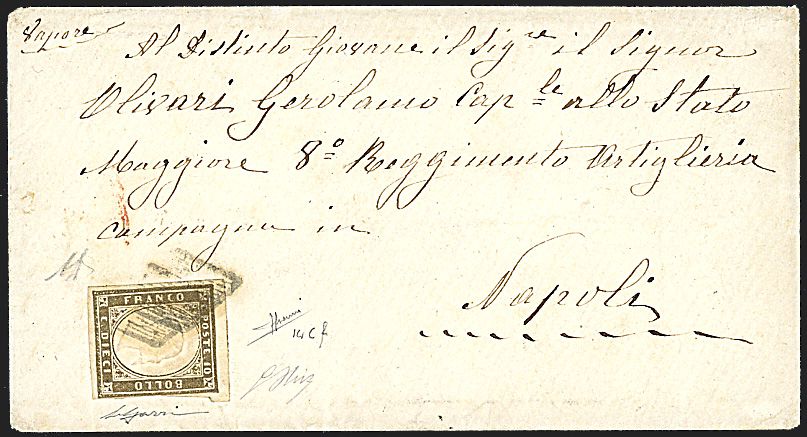 Vapore
Al Distinto Giovane il Sigre il Signor
Olivari Gerolamo Caple allo Stato
Maggiore 8º Reggimento Artiglieria
campagna in
Napoli
FRANCO
C. DIECI
POSTE 10
BOLLO
14 C f